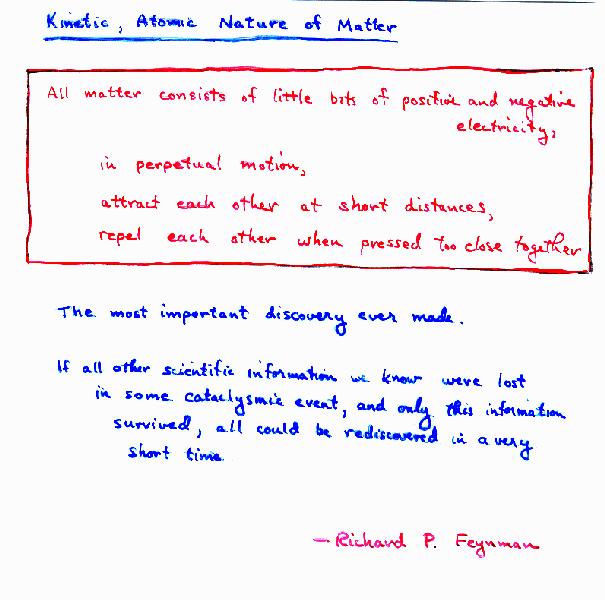 Kinetic, Atomic Nature of Matter
All matter consists of little bits of positive and negative
electricity,
in perpetual motion,
attract each other at short distances,
repel each other when pressed too close together
The most important discovery ever made.
If all other scientific information we know were lost
in some cataclysmic event, and only this information
survived, all could be rediscovered in a very
short time
— Richard P. Feynman